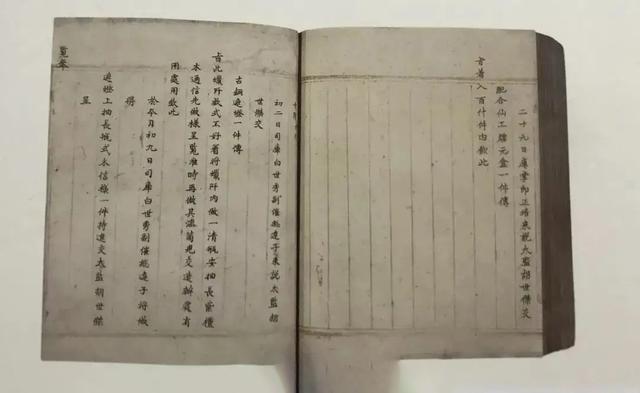 二十九日庫掌郎正培來說太監胡世傑交
配合仙工牌元盒一件傳
旨着入百什件內欽此
初二日司庫白世秀副催總達子來說太監胡
世傑交
古銅遠燈一件傳
旨此蠟阡款式不好着將蠟阡內做一清瓶安抽長
木通信先做樣呈覽准時再做其兒交造辦處有
用處用欽此
於本月初九日司庫白世秀副催總達子將做
得
遠燈上抽長瓶式木信樣一件持進交太監胡世傑
呈
覽奉